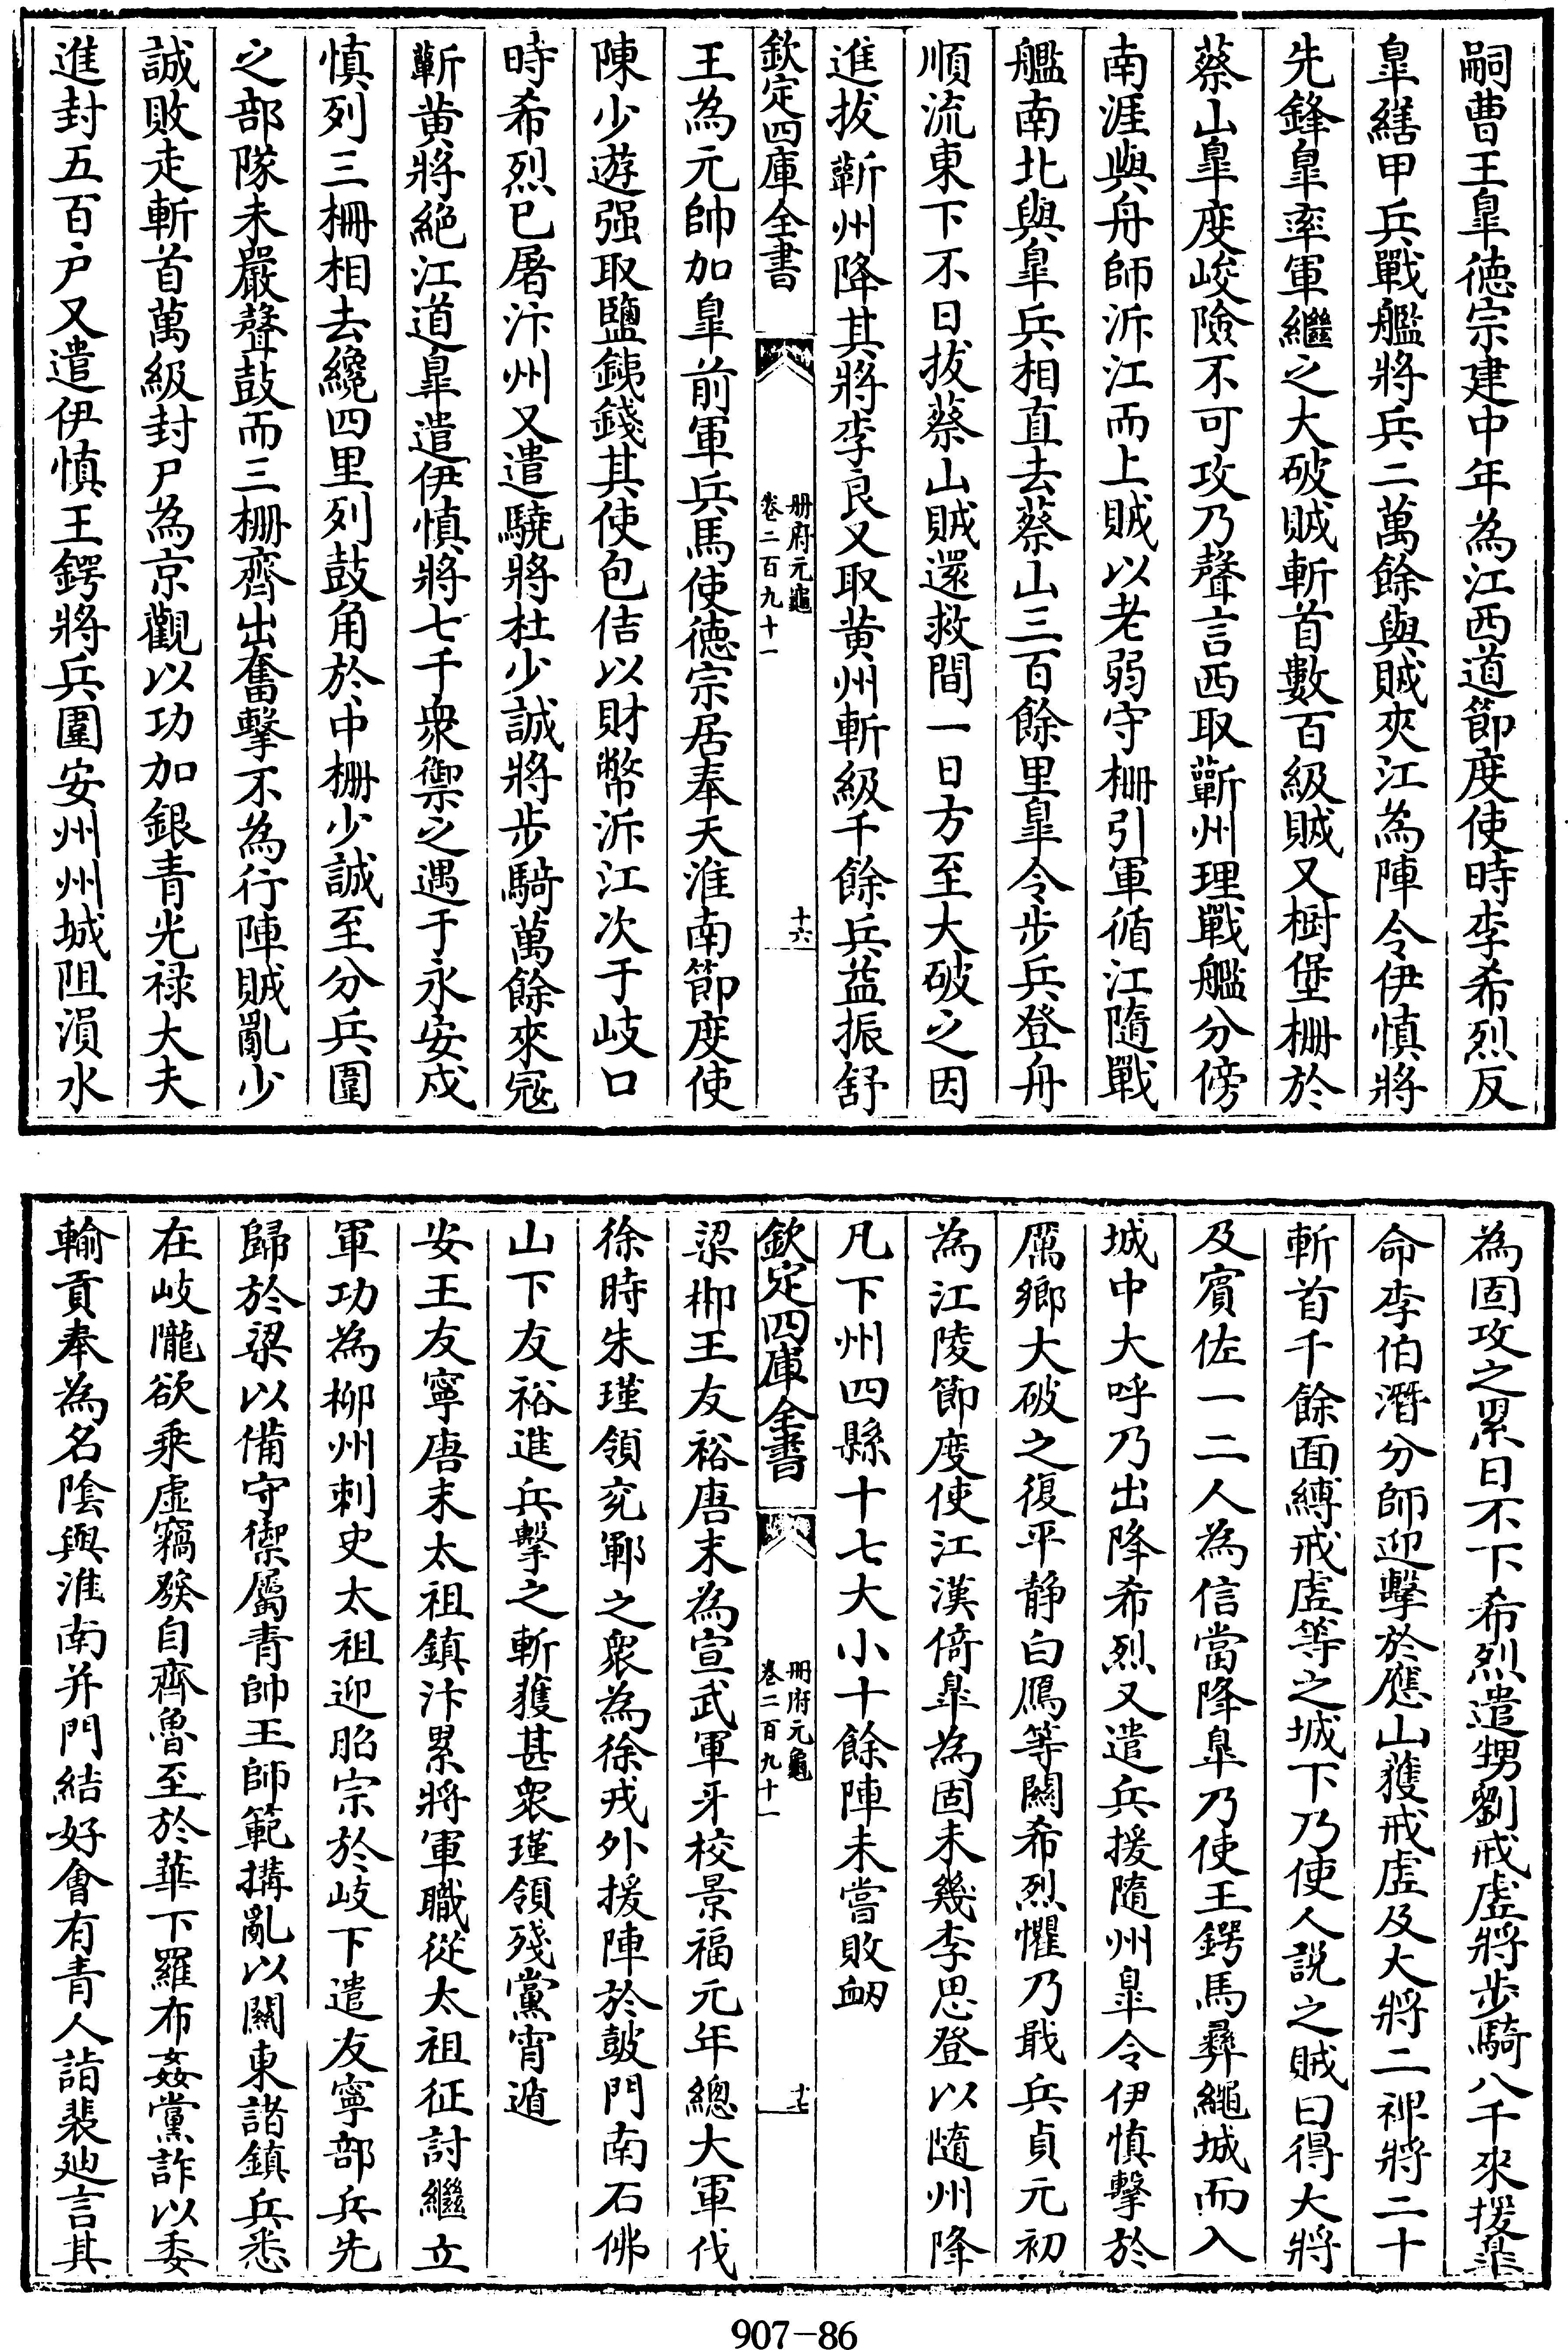 嗣曹王臯德宗建中年為江西道節度使時李希烈反
臯繕甲兵戰艦將兵二萬餘與賊夾江為陣令伊慎將
先鋒臯率軍繼之大破賊斬首數百級賊又樹堡柵於
蔡山臯度峻險不可攻乃聲言西取蘄州理戰艦分傍
南涯與舟師泝江而上賊以老弱守柵引軍循江隨戰
艦南北與臯兵相直去蔡山三百餘里臯令步兵登舟
順流東下不日拔蔡山賊還救間一日方至大破之因
進拔蘄州降其將李良又取黄州斬級千餘兵益振舒
欽定四庫全書
冊府元龜
卷二百九十一
十六
王為元帥加臯前軍兵馬使德宗居奉天淮南節度使
陳少遊强取鹽鉄錢其使包佶以財幣泝江次于岐口
時希烈已屠汴州又遣驍將杜少誠將步騎萬餘來寇
蘄黄將絶江道臯遣伊慎將七千衆禦之遇于永安戍
慎列三柵相去纔四里列鼓角於中柵少誠至分兵圍
之部隊未嚴聲鼓而三柵齊出奮擊不為行陣賊亂少
誠敗走斬首萬級封尸為京觀以功加銀青光禄大夫
進封五百户又遣伊慎王鍔將兵圍安州州城阻溳水
為固攻之累日不下希烈遣甥劉戒虚將步騎八千來援臯
命李伯潛分師迎擊於應山獲戒虚及大將二裨將二十
斬首千餘面縛戒虚等之城下乃使人説之賊曰得大將
及賓佐一二人為信當降臯乃使王鍔馬彝繩城而入
城中大呼乃出降希烈又遣兵援隨州臯令伊慎擊於
厲鄉大破之復平静白鴈等關希烈懼乃戢兵貞元初
為江陵節度使江漢倚臯為固未幾李思登以隨州降
凡下州四縣十七大小十餘陣未嘗敗衂
欽定四庫全書
冊府元龜
卷二百九十一
十七
梁郴王友裕唐末為宣武軍牙校景福元年總大軍伐
徐時朱瑾領兖鄆之衆為徐戎外援陣於彭門南石佛
山下友裕進兵擊之斬獲甚衆瑾領殘黨宵遁
安王友寧唐末太祖鎮汴累將軍職從太祖征討繼立
軍功為柳州刺史太祖迎昭宗於岐下遣友寧部兵先
歸於梁以備守禦屬青帥王師範搆亂以關東諸鎮兵悉
在岐隴欲乘虚竊發自齊魯至於華下羅布姦黨詐以委
輸貢奉為名陰與淮南并門結好會有青人詣裴廸言其
907-86